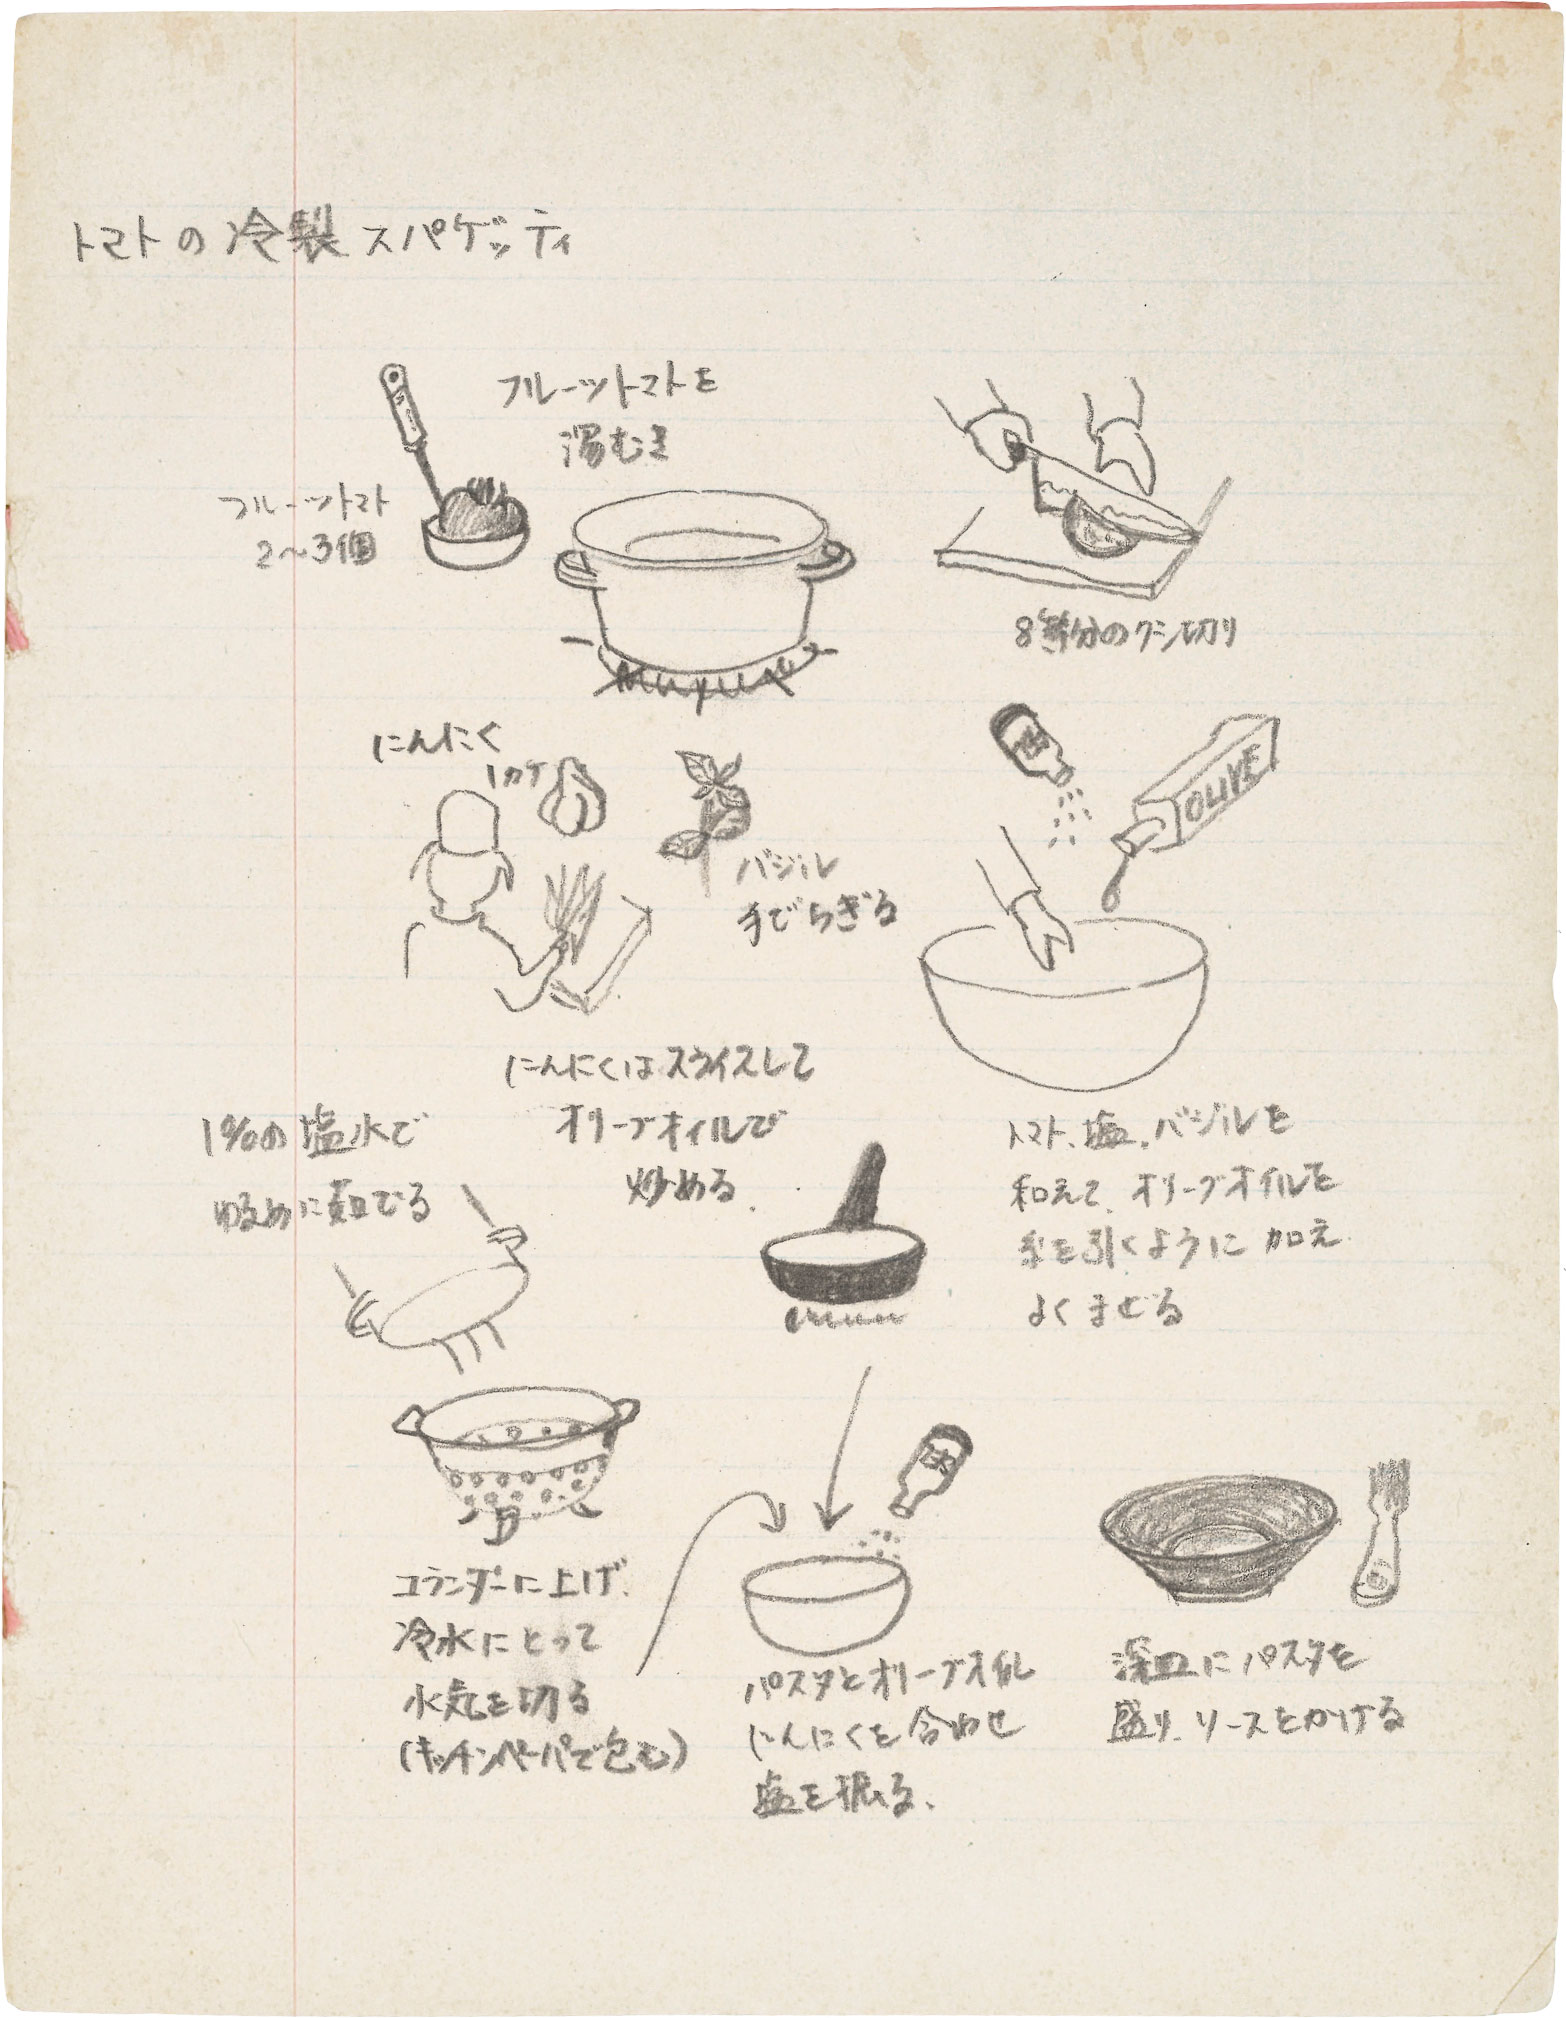 トマトの冷製スパゲッティ
フルーツトマトを
湯むき
フルーツトマト
2〜3個
8等分のクシ切り
にんにく
1カケ
バジル
手でちぎる
塩
OLIVE
にんにくはスライスして
オリーブオイルで
炒める.
1%の塩水で
ゆるめに茹でる
トマト、塩、バジルを
和えて、オリーブオイルを
糸を引くように加え
よくまぜる
コランダーに上げ、
冷水にとって
水気を切る
(キッチンペーパで包む)
塩
パスタとオリーブオイル
にんにくを合わせ
塩を振る、
深皿にパスタを
盛り、ソースをかける